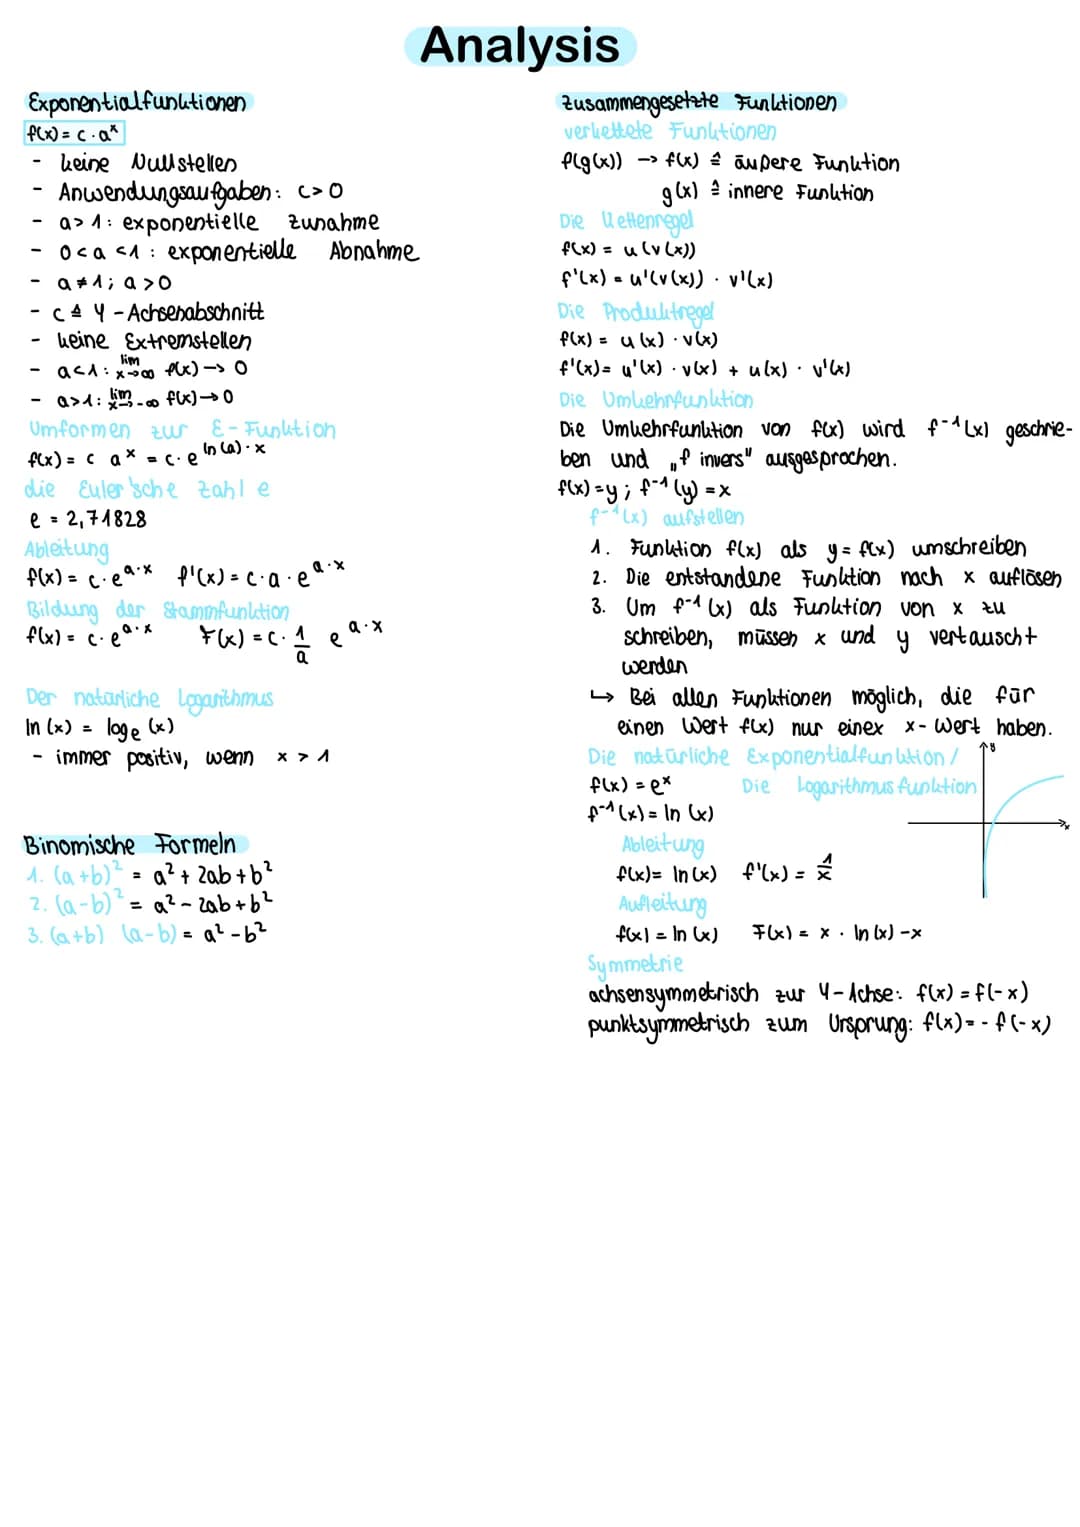 Analysis
Exponentialfunktionen
f(x) = c · aˣ
- keine Nullstellen
- Anwendungsaufgaben: c > 0
- a > 1 : exponentielle Zunahme
- 0 < a < 1 : exponentielle Abnahme
- a ≠ 1 ; a > 0
- c ≙ Y - Achsenabschnitt
- keine Extremstellen
- a < 1 : lim x→∞ f(x) → 0
- a > 1 : lim x→-∞ f(x) → 0
Umformen zur E - Funktion
f(x) = c aˣ = c · e^ln(a) · x
die Euler'sche Zahl e
e = 2,71828
Ableitung
f(x) = c · e^a·x f'(x) = c · a · e^a·x
Bildung der Stammfunktion
f(x) = c · e^a·x F(x) = c · 1/a e^a·x
Der natürliche Logarithmus
ln (x) = logₑ (x)
- immer positiv, wenn x > 1
Binomische Formeln
1. (a + b)² = a² + 2ab + b²
2. (a - b)² = a² - 2ab + b²
3. (a + b) (a - b) = a² - b²
Zusammengesetzte Funktionen
verkettete Funktionen
f(g(x)) -> f(x) ≙ äußere Funktion
g(x) ≙ innere Funktion
Die Kettenregel
f(x) = u (v (x))
f'(x) = u'(v (x)) · v'(x)
Die Produktregel
f(x) = u (x) · v(x)
f'(x) = u'(x) · v(x) + u(x) · v'(x)
Die Umkehrfunktion
Die Umkehrfunktion von f(x) wird f⁻¹(x) geschrie-
ben und „f invers" ausgesprochen.
f(x) = y ; f⁻¹(y) = x
f⁻¹(x) aufstellen
1. Funktion f(x) als y = f(x) umschreiben
2. Die entstandene Funktion nach x auflösen
3. Um f⁻¹(x) als Funktion von x zu
schreiben, müssen x und y vertauscht
werden
↳ Bei allen Funktionen möglich, die für
einen Wert f(x) nur einex x- Wert haben.
Die natürliche Exponentialfunktion /
f(x) = eˣ Die Logarithmusfunktion
f⁻¹(x) = ln (x)
y
x
Ableitung
f(x) = ln (x) f'(x) = 1/x
Aufleitung
f(x) = ln (x) F(x) = x · ln (x) - x
Symmetrie
achsensymmetrisch zur Y - Achse: f(x) = f(- x)
punktsymmetrisch zum Ursprung: f(x) = - f (- x)